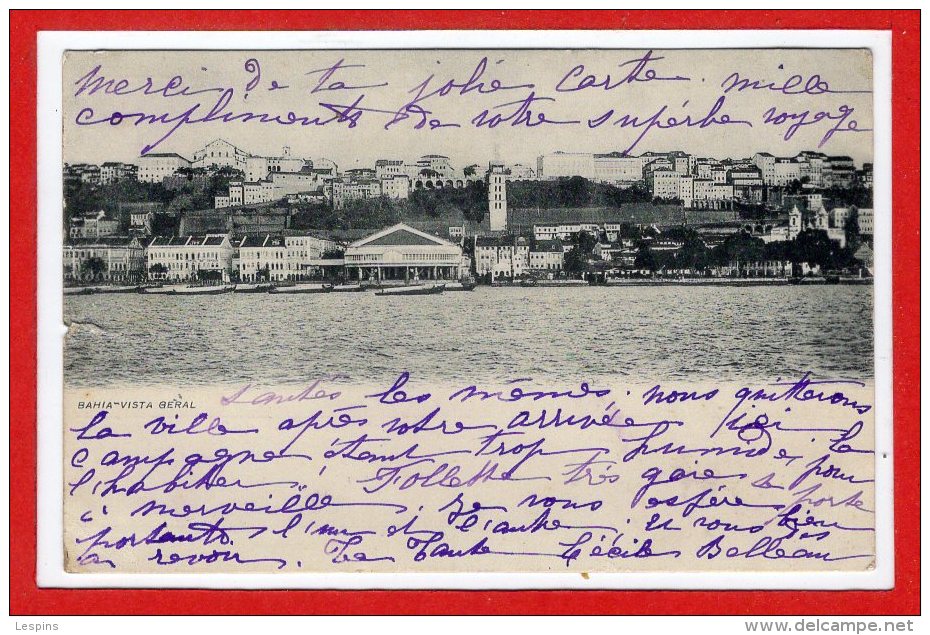 Merci De ta jolie Carte. mille
compliments De votre supérbe voyage
BAHIA-VISTA GERAL
Santés les mêmes. nous quitterons
la ville après votre arrivée ici la
campagne étant trop humide, pour
l'habiter. Follette très gaie se porte
à merveille, je vous espére bien
portants l'un et l'autre. Et vous dis
a revoir. Ta Tante Cécile Belleau
Lespins
www.delcampe.net